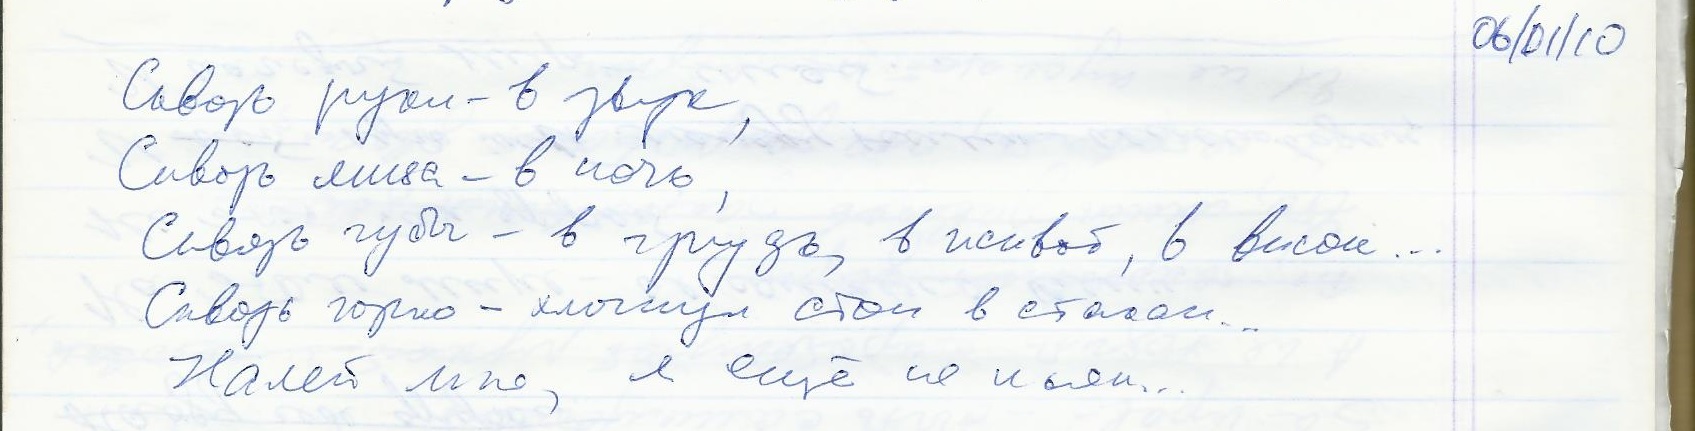 06/01/10
Сквозь руки – в звук,
Сквозь лица – в ночь,
Сквозь губы – в грудь, в живот, в висок...
Сквозь горло – хлынул стон в стакан...
Налей мне, я ещё не пьян...